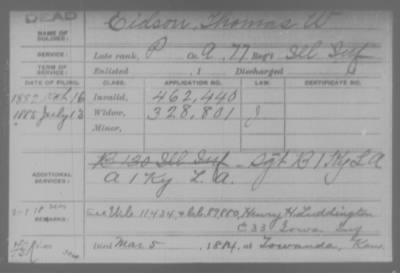 DEAD
NAME OF SOLDIER: Eidson, Thomas W
SERVICE: Late rank, P Co. A, 77 Reg't Ill Inf
TERM OF SERVICE: Enlisted , 1 Discharged
DATE OF FILING. CLASS. APPLICATION NO. LAW. CERTIFICATE NO.
1882 Feb 16 Invalid, 462,440
1885 July 13 Widow, 328,801 J
Minor,
ADDITIONAL SERVICES: K 130 Ill Inf - Sgt B 1 Ky L A
A 1 Ky L. A.
REMARKS: 11434 87,880, Henry H. Luddington
C 33 Iowa Inf
Died Mar 5, 1884, at Towanda, Kans.